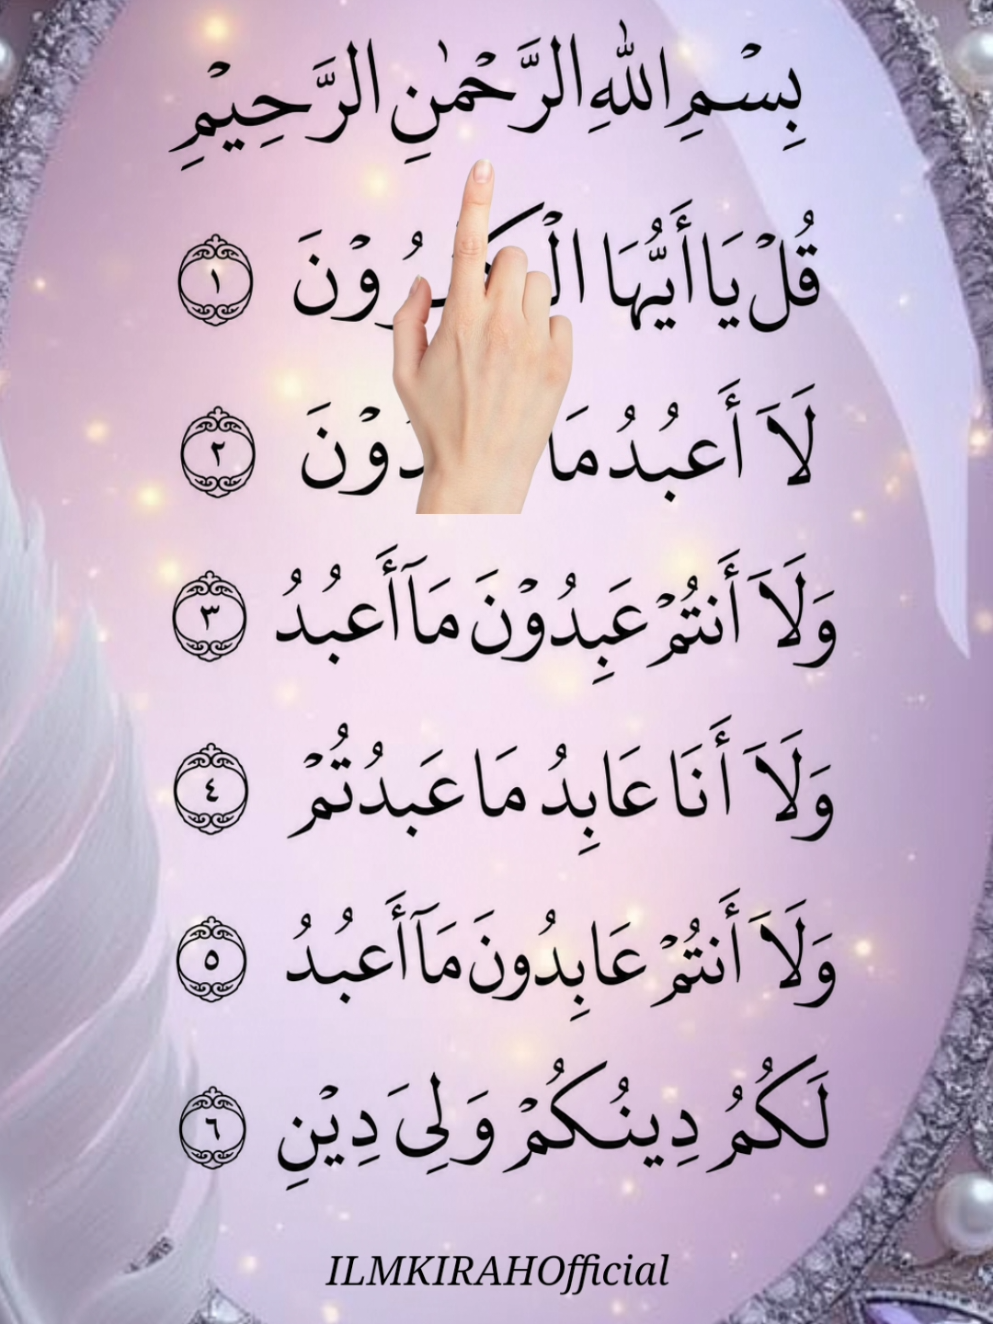 بِسْمِ اللهِ الرَّحْمٰنِ الرَّحِيْمِ
قُلْ يَا أَيُّهَا ١
لَا أَعبُدُ مَا ٢
وَلَا أَنتُمْ عَبِدُوْنَ مَآ أَعبُدُ ٣
وَلَا أَنَا عَابِدُ مَا عَبدُتُمْ ٤
وَلَا أَنتُمْ عَابِدُونَ مَآ أَعبُدُ ٥
لَكُمُ دِينُكُمْ وَلِىَ دِيْنِ ٦
ILMKIRAHOfficial